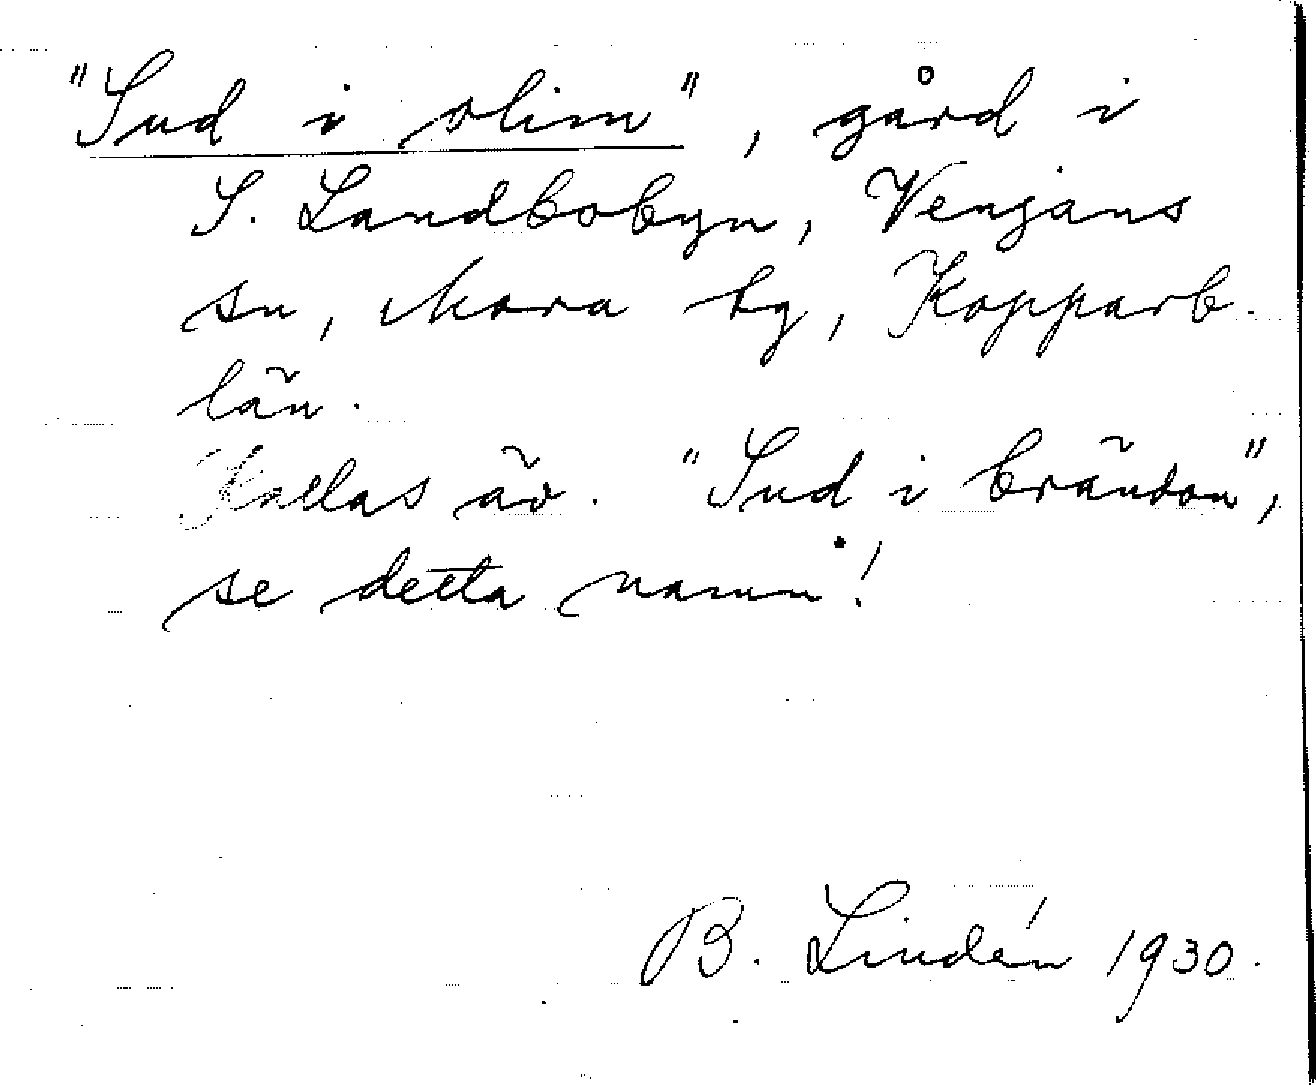 "Sud i olim", gård i
S. Landbobyn, Venjans
sn, Mora tg, Kopparb.
län.
Kallas äv. "Sud i brändon",
se detta namn!
B. Lindén 1930.